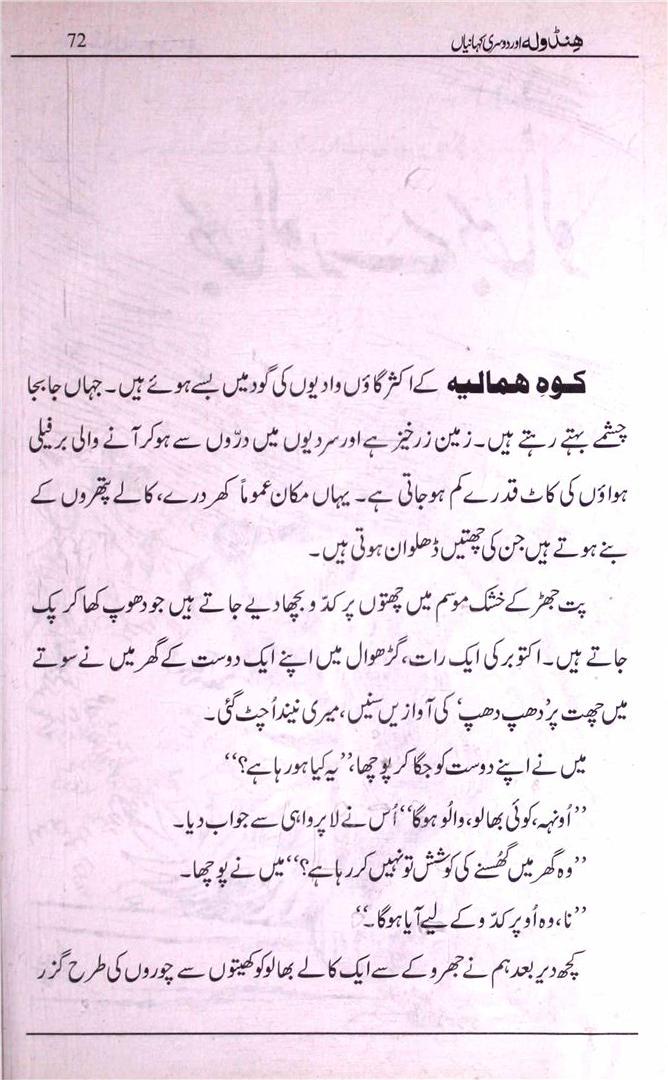 ہِنڈولہ اور دوسری کہانیاں
72
کوہِ ہمالیہ کے اکثر گاؤں وادیوں کی گود میں بسے ہوئے ہیں۔ جہاں جابجا
چشمے بہتے رہتے ہیں۔ زمین زرخیز ہے اور سردیوں میں درّوں سے ہو کر آنے والی برفیلی
ہواؤں کی کاٹ قدرے کم ہو جاتی ہے۔ یہاں مکان عموماً کھردرے، کالے پتھروں کے
بنے ہوتے ہیں جن کی چھتیں ڈھلوان ہوتی ہیں۔
پت جھڑ کے خشک موسم میں چھتوں پر کدّو بچھا دیے جاتے ہیں جو دھوپ کھا کر پک
جاتے ہیں۔ اکتوبر کی ایک رات، گڑھوال میں اپنے ایک دوست کے گھر میں نے سوتے
میں چھت پر ’دھپ دھپ‘ کی آوازیں سنیں، میری نیند اُچٹ گئی۔
میں نے اپنے دوست کو جگا کر پوچھا، ’’یہ کیا ہو رہا ہے؟‘‘
’’اُونہہ، کوئی بھالو، والُو ہوگا‘‘ اُس نے لا پرواہی سے جواب دیا۔
’’وہ گھر میں گھُسنے کی کوشش تو نہیں کر رہا ہے؟‘‘ میں نے پوچھا۔
’’نا، وہ اُوپر کدّو کے لیے آیا ہوگا۔‘‘
کچھ دیر بعد ہم نے جھروکے سے ایک کالے بھالو کو کھیتوں سے چوروں کی طرح گزر